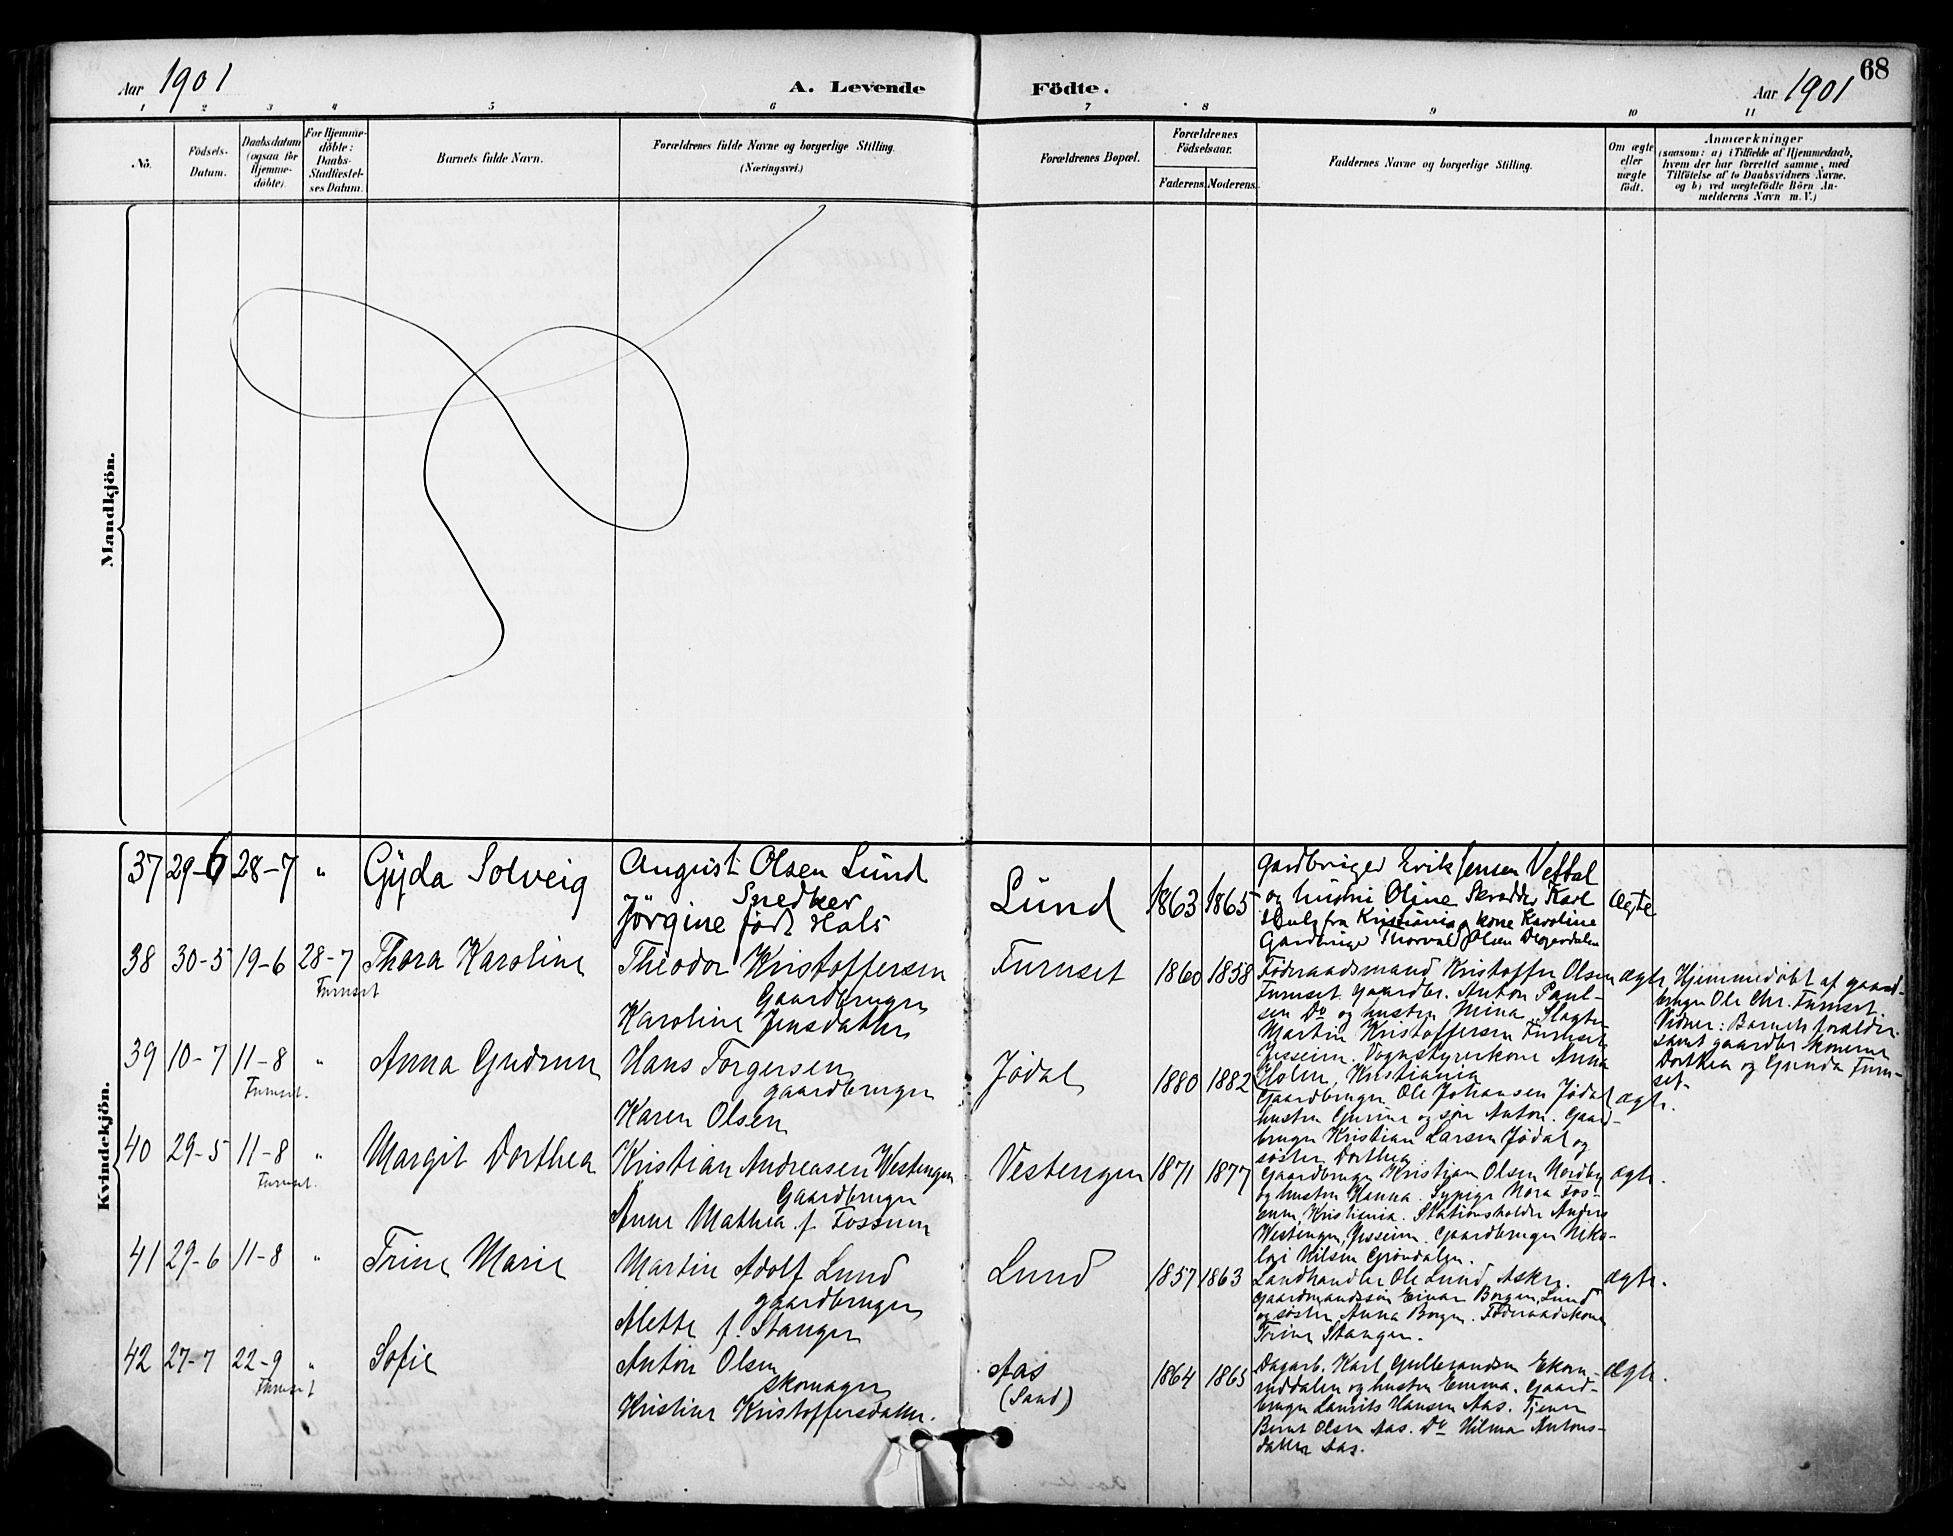 68
Aar 1901
A. Levende
Födte.
Aar 1901
1 2 3 4 5 6 7 8 9 10 11
No.
Födsels-
Datum.
Daabsdatum
(ogsaa for
Hjemme-
döbte).
For Hjemme-
döbte:
Daabs-
Stadfæstel-
ses Datum.
Barnets fulde Navn.
Forældrenes fulde Navne og borgerlige Stilling.
(Næringsvei.)
Forældrenes Bopæl.
Forældrenes
Födselsaar.
Faderens.
Moderens.
Faddernes Navne og borgerlige Stilling.
Om ægte
eller
uægte
födt.
Anmærkninger
(saasom: a) i Tilfælde af Hjemmedaab,
hvem der har forrettet samme, med
Tilföielse af to Daabsvidners Navne.
og b) ved uægtefödte Börn An-
melderens Navn m. V.)
Mandkjön.
Kvindekjön.
37 29-6 28-7 " Gyda Solveig
August Olsen Lund
Snedker
Jörgine födt Hals
Lund 1863 1865
Gardbruger Erik Jensen Vestal
og hustru Oline Skrædder Karl
fra Kristiania o kone Karoline
Gardbruger Thorvald Olsen
ægte
38 30-5 19-6 28-7 Thora Karoline
Furuset
Theodor Kristoffersen
Gaardbruger
Karoline Jensdatter
Furuset 1860 1858
Föderaadsmand Kristoffer Olsen
Furuset Gaardbr. Anton Paul-
sen Do og hustru Mina. Slagter
Martin Kristoffersen Furuset
Jessein. Vognstyrerkone Anna
Holm, Kristiania
ægte.
Hjemmedøbt af gaard-
bruger Ole Chr. Furuset.
Vidner: Barnets forældre
samt gaardbr. konerne
Dorthea og Gunda Furu-
set.
39 10-7 11-8 " Anna Gudrun
Furuset.
Hans Torgersen
gaardbruger
Karen Olsen
Jødal 1880 1882
Gaardbruger Ole Johansen Jødal
hustru Gurine og søn Anton. Gaard-
bruger Kristian Larsen Jødal og
søster Dorthea
ægte.
40 29-5 11-8 " Margit Dorthea
Furuset.
Kristian Andreasen Westengen
Gaardbruger
Anne Mathea f. Fossum
Vestengen 1871 1877
Gaardbruger Kristian Olsen Nordby
og hustru Hanna. Sypige Nora Fos-
sum, Kristiania. Stationsholder Anders
Westengen, Jessein. Gaardbruger Niko-
lai Nilsen Gröndalen.
ægte.
41 29-6 11-8 " Trine Marie
Martin Adolf Lund
gaardbruger
Alette f. Stangen
Lund 1857 1863
Landhandler Ole Lund, Asker.
Gaardmandssøn Einar Borgen, Lund
og søster Anna Borgen. Föderaadskone
Trine Stangen.
ægte.
42 27-7 22-9 " Sofie
Furuset
Anton Olsen
skomager
Kristine Kristoffersdatter.
Aas 1864 1865
(Sand)
Dagarb. Karl Gulbrandsen Ekorn-
ruddalen og hustru Emma. Gaard-
bruger Laurits Hansen Aas. Tjener
Bernt Olsen Aas. Do Hilma Antons-
datter Aas.
ægte.